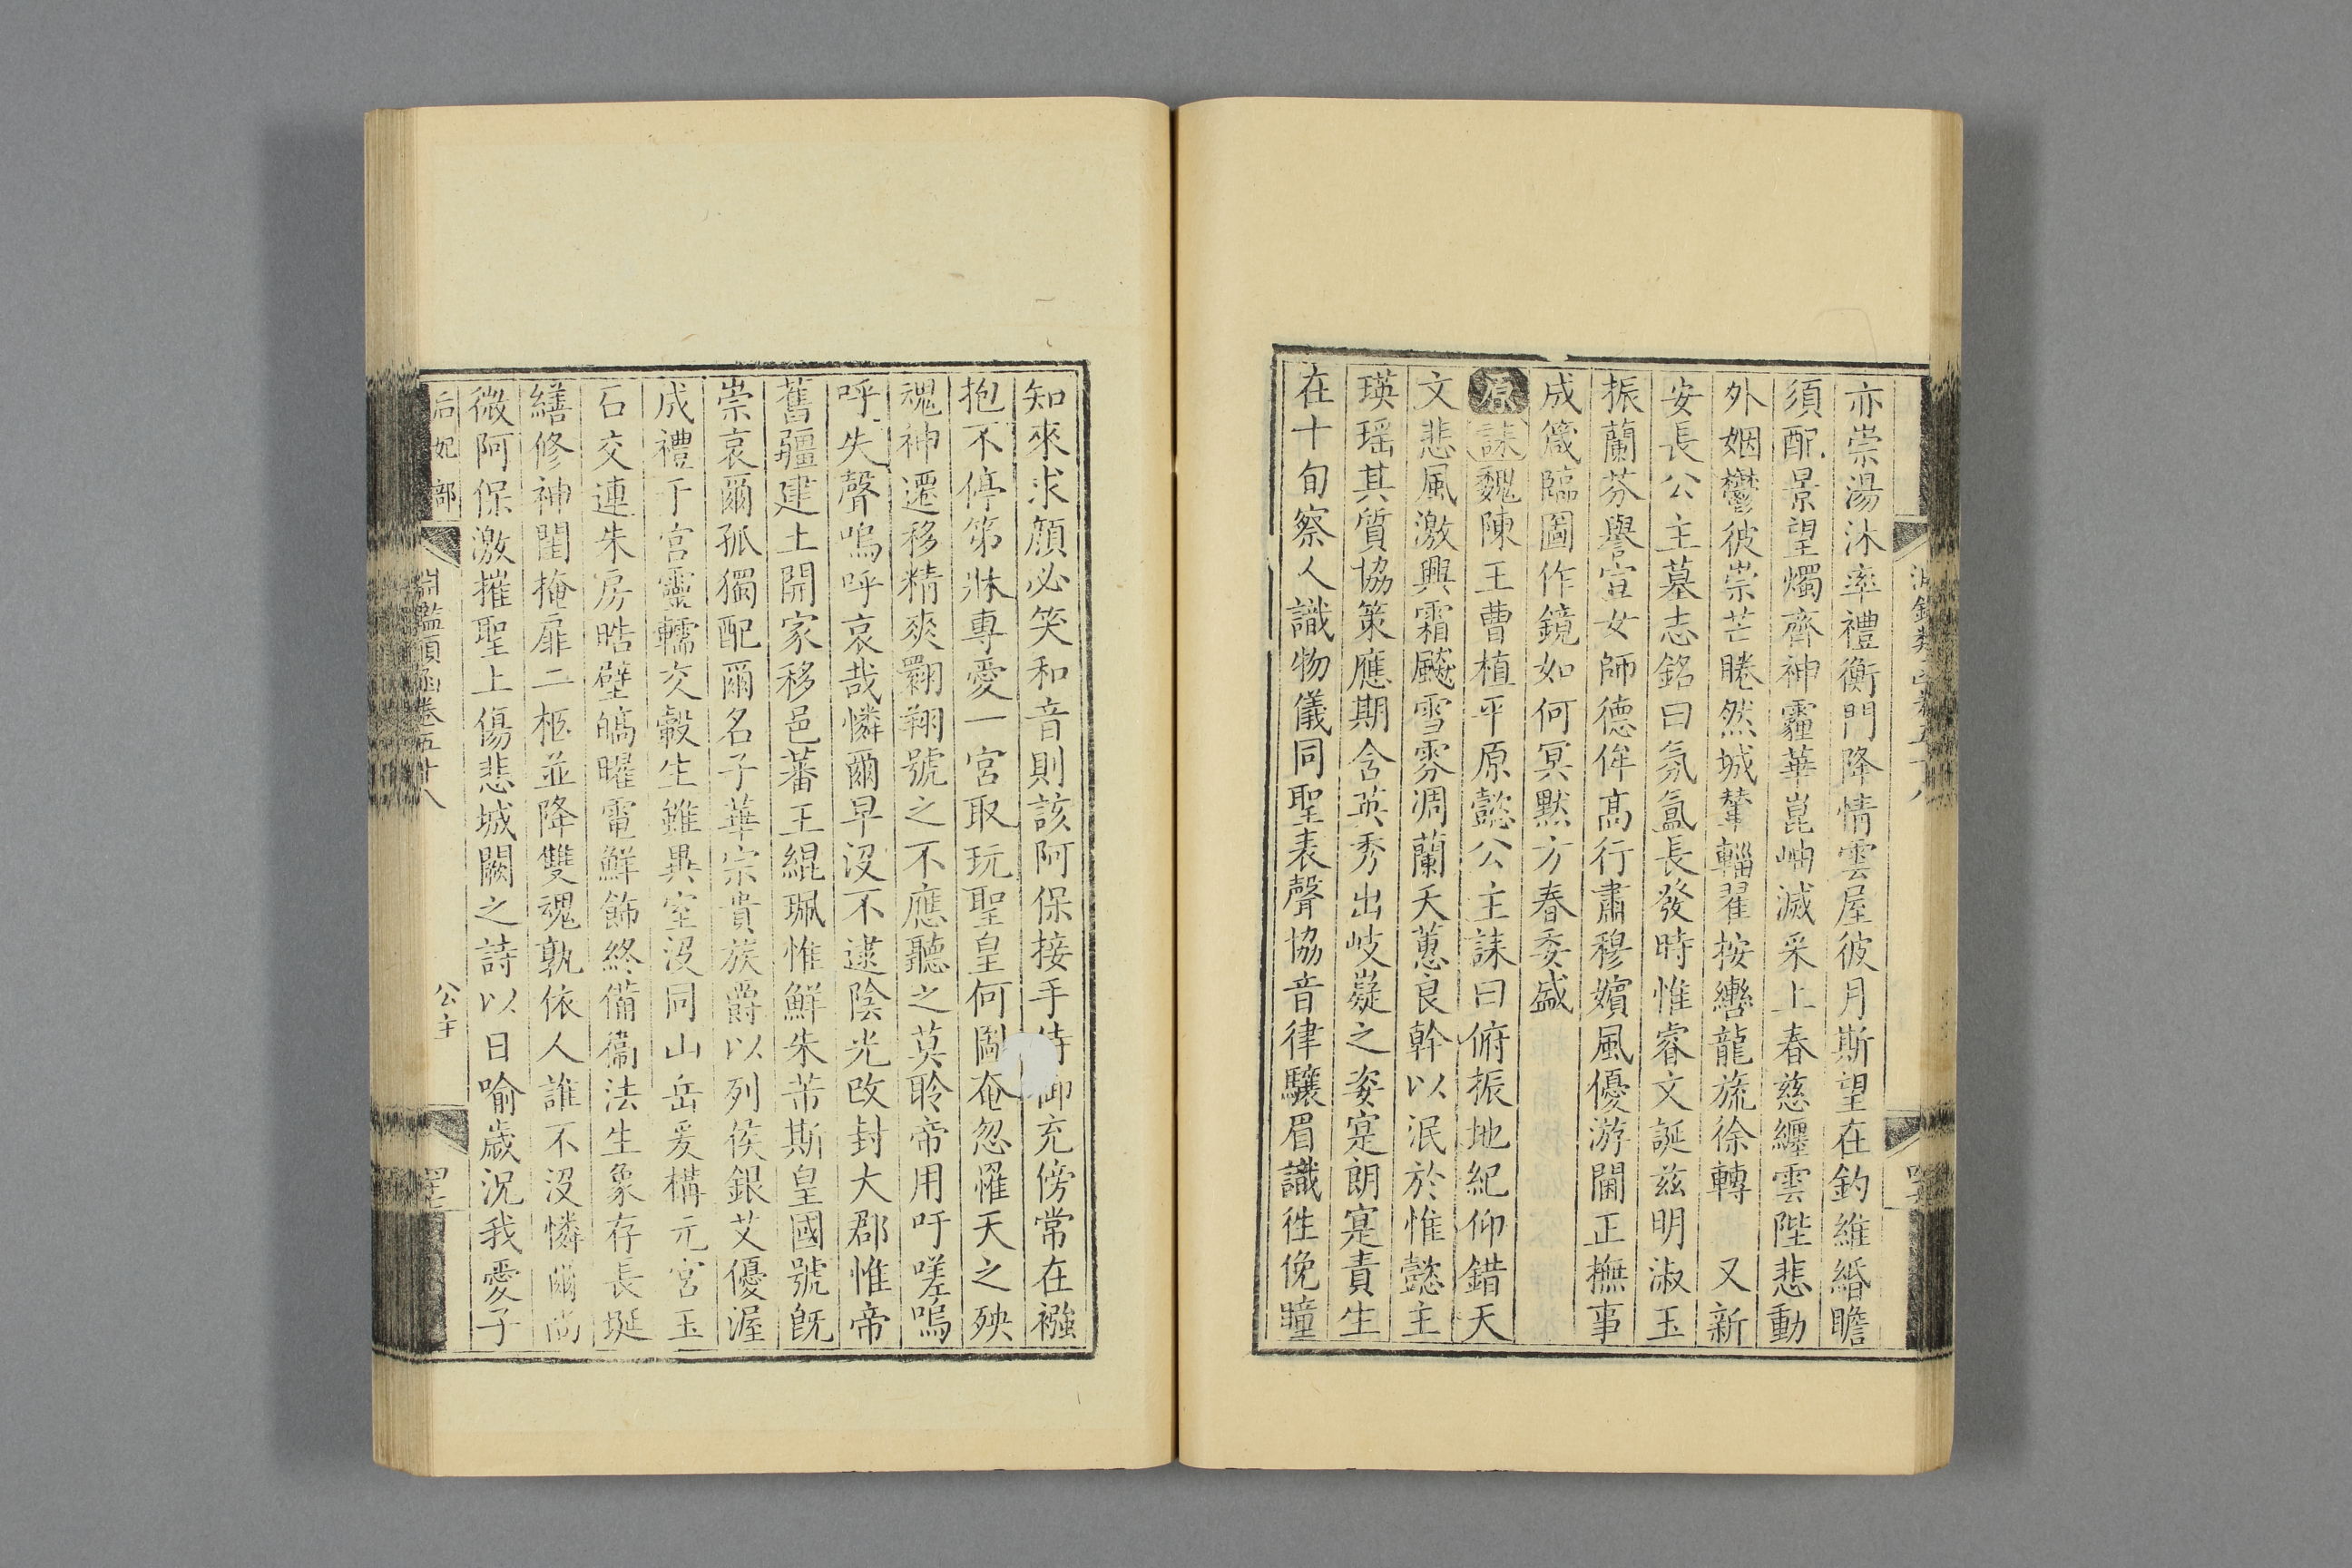 亦崇湯沐率禮衡門降情雲屋彼月斯望在釣維緡瞻
須配景望燭齊神霾華崑岫滅采上春慈纒雲陛悲動
外姻鬱彼崇芒睠然城輦輜翟按轡龍旒徐轉 又新
安長公主墓志銘曰氛氳長發時惟睿文誕兹明淑玉
振蘭芬譽宣女師德侔高行肅穆嬪風優游閫正撫事
成箴臨圖作鏡如何冥默方春委盛
原誄魏陳王曹植平原懿公主誄曰俯振地紀仰錯天
文悲風激興霜飈雪雰凋蘭夭蕙良幹以泯於惟懿主
瑛瑶其質協策應期含英秀出岐嶷之姿寔朗寔責生
在十旬察人識物儀同聖表聲協音律驤眉識往俛瞳
知來求顔必笑和音則該阿保接手侍御充傍常在襁
抱不停笫牀專愛一宮取玩聖皇何圖奄忽罹天之殃
魂神遷移精爽翱翔號之不應聽之莫聆帝用吁嗟嗚
呼失聲嗚呼哀哉憐爾早没不逮陰光改封大郡惟帝
舊疆建土開家移邑蕃王緄珮惟鮮朱芾斯皇國號旣
崇哀爾孤獨配爾名子華宗貴族爵以列侯銀艾優渥
成禮于宮靈輀交轂生雖異室没同山岳爰構元宮玉
石交連朱房皓壁皜曜電鮮飾終備衞法生象存長埏
繕修神閨掩扉二柩並降雙魂孰依人誰不没憐爾尚
微阿保激摧聖上傷悲城闕之詩以日喻歲況我愛子
后妃部
淵鑑類函卷五十八
公主